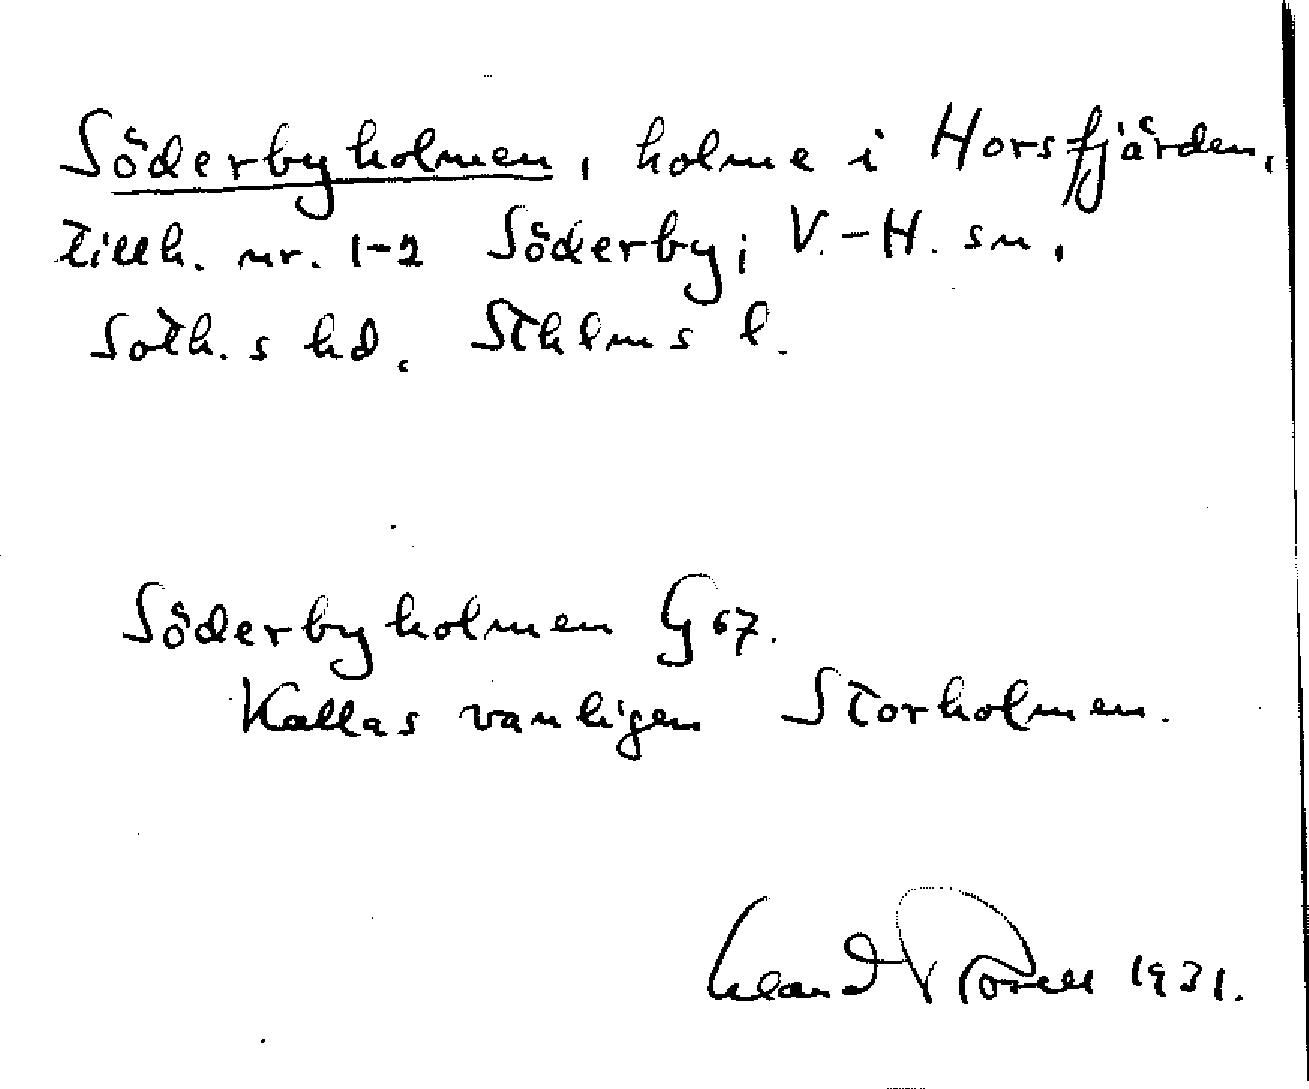 Söderbyholmen, holme i Horsfjärden,
tillh. nr. 1-2 Söderby, V.-H. sn,
Soth.s hd, Sthlms l.
Söderbyholmen G 67.
Kallas vanligen Storholmen.
1931.